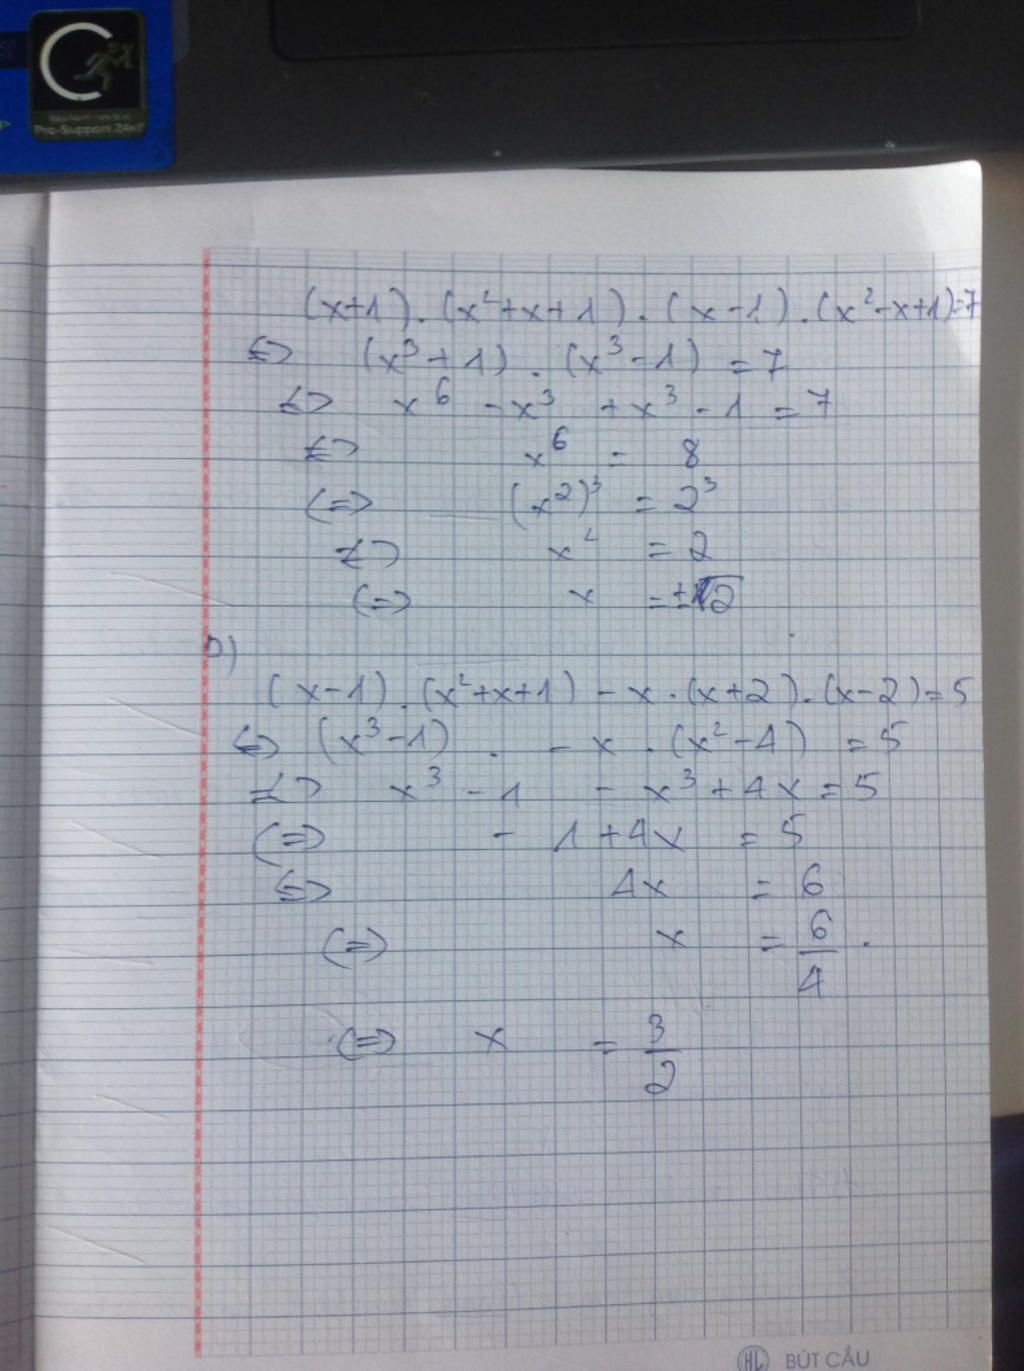 Pro-Support 24x7
(x+1).(x²+x+1).(x-1).(x²-x+1)=7
<=> (x³+1).(x³-1) = 7
<=> x⁶ - x³ + x³ - 1 = 7
<=> x⁶ = 8
<=> (x²)³ = 2³
<=> x² = 2
<=> x = ±√2
b)
(x-1).(x²+x+1) - x.(x+2).(x-2) = 5
<=> (x³-1) . - x.(x²-4) = 5
<=> x³ - 1 - x³ + 4x = 5
<=> - 1 + 4x = 5
<=> 4x = 6
<=> x = 6/4 .
<=> x = 3/2
HL BÚT CẦU